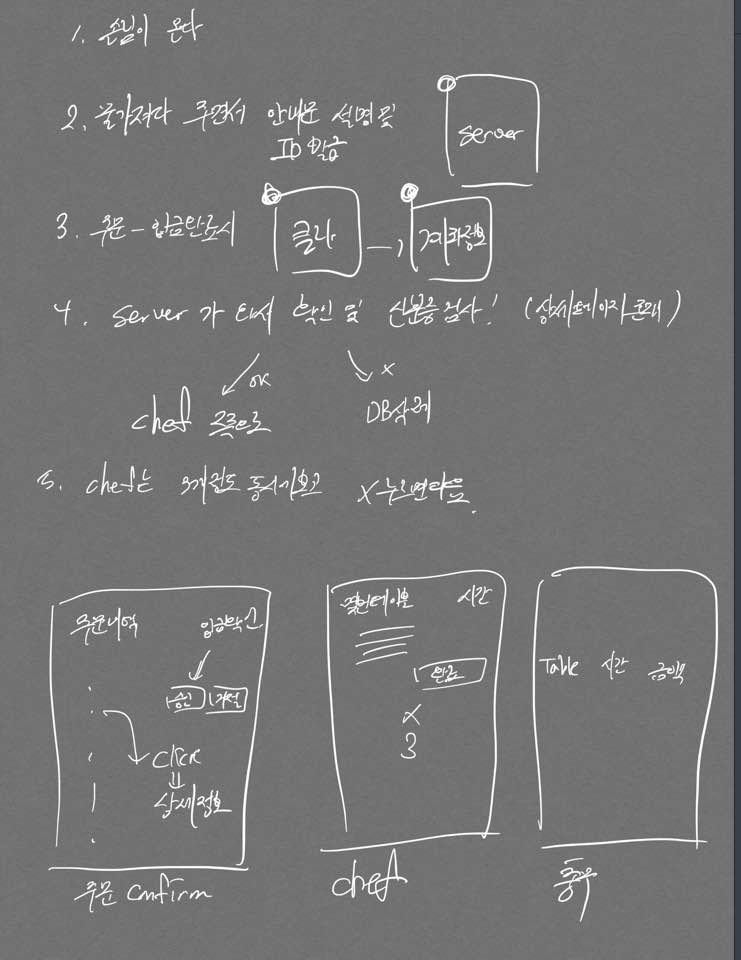 1. 손님이 온다
2. 물가져다 주면서 안내문 설명 및
ID 발급
server
3. 주문 - 입금완료시
클라
계좌정보
4. server 가 가서 확인 및 신분증 검사! (상세페이지 존재)
OK
X
chef 쪽으로
DB삭제
5. chef는 3개정도 동시에보고 X누르면다음.
주문내역
입금확인
승인
거절
click
상세정보
주문 confirm
시간
완료
X
3
chef
Table 시간 금액